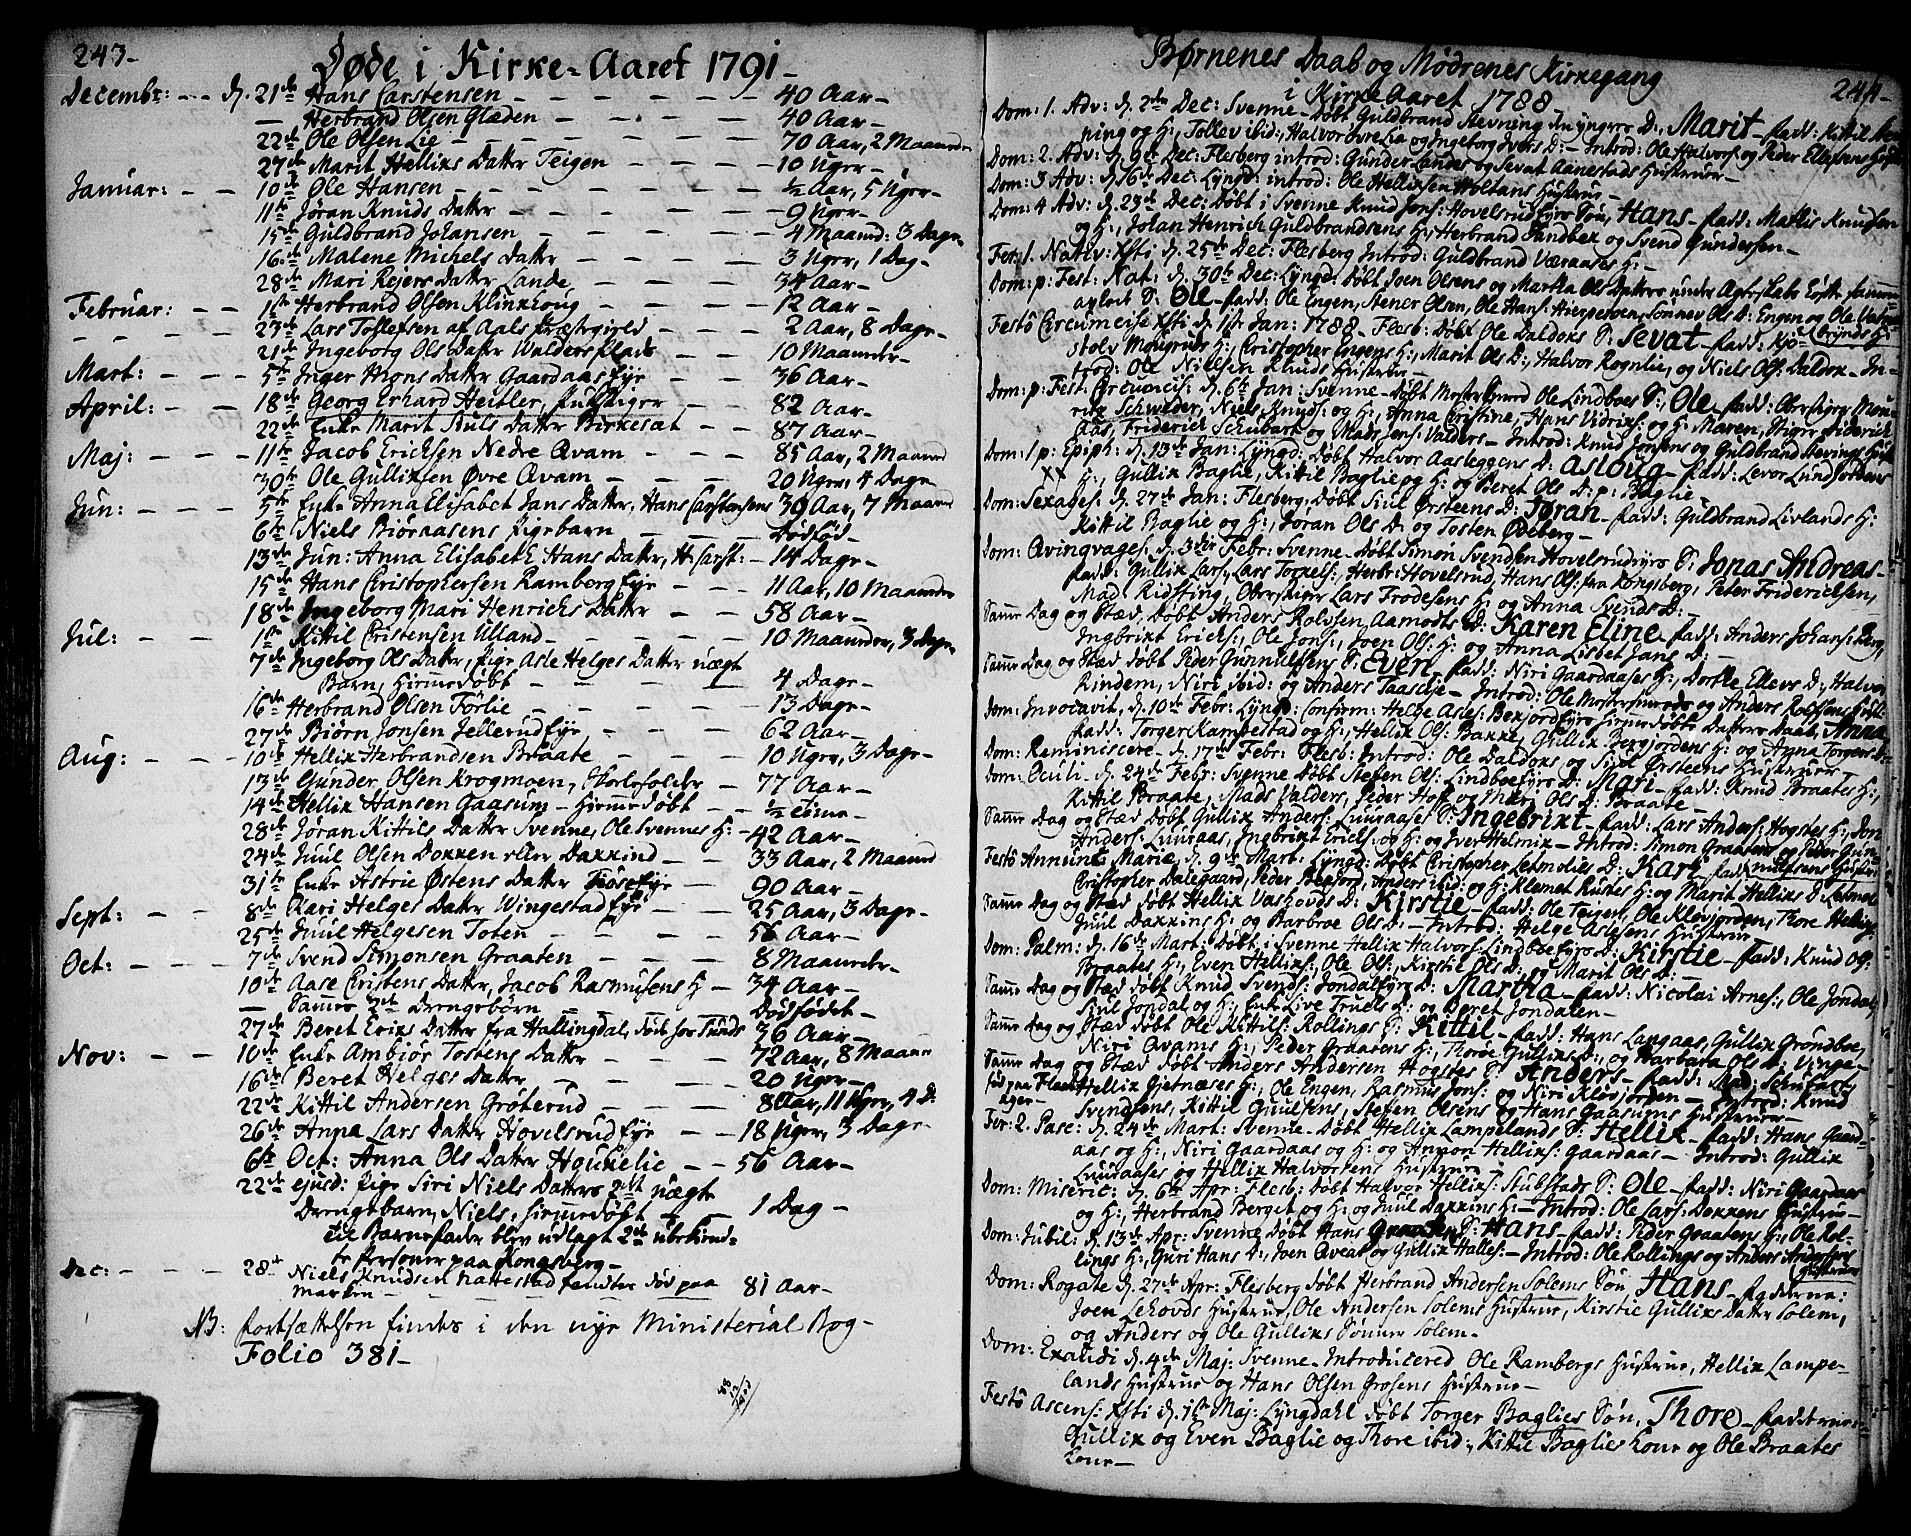 243-
Døde i Kirke-Aaret 1791-
Decembr: - - d. 21de Hans Carstensen - - - 40 Aar-
— Herbrand Olsen Glæden - - - 40 Aar-
22de Ole Olsen Lie - - - 70 Aar, 2 Maaneder
27de Marit Hellixs Datter Teigen - - 10 Uger-
Januar: - - 10de Ole Hansen - - - ½ Aar, 5 Uger-
11te Jøran Knuds Datter - - - 9 Uger-
15de Guldbrand Johansen - - - 4 Maaned: 3 Dage-
16de Malene Michels Datter - - - 3 Uger, 1 Dag-
28de Mari Rejers Datter Lande, - - - 34 Aar-
Februar: - - 1te Herbrand Olsen Klinkhoug - - - 12 Aar-
- - - 23de Lars Tollefsen af Aals Præstegield - - - 2 Aar, 8 Dage-
21de Ingeborg Ols Datter Walders Plads - - 10 Maaneder-
Mart: - - - 5te Inger Mons Datter Gaardaas Eje - - - 36 Aar-
April: - - - 18de Georg Erhard Heitler, - - 82 Aar-
22de Enke Marit Juls Datter Birkesæt - - 87 Aar-
Maj: - - - 11te Jacob Ericksen Nedre Qvam - - - 85 Aar, 2 Maaned
30te Ole Gullixsen Øvre Qvam - - - 20 Uger, 4 Dage-
Jun: - - - 5te Enke Anna Elisabet Jans Datter, Hans Carstensens 39 Aar, 7 Maaned
6te Niels Biøraasens Pigebarn - - - Dødfød-
13de Jun: Anna Elisabeth Hans Datter, H. Carst: - 14 Dage-
15de Hans Cristophersen Ramberg Eje - - - 11 Aar, 10 Maaneder
18de Ingeborg Mari Henrichs Datter - - 58 Aar-
Jul: - - 1te Kittil Cristensen Ulland - - - 10 Maaneder, 3 Dage
7de Ingeborg Ols Datter, Pige Asle Helges Datter uægte
Barn, Hiemedøbt - - - 4 Dage-
16de Herbrand Olsen Førlie - - - 13 Dage-
27de Biørn Jonsen Jellerud Eje - - - 62 Aar-
Aug: - - - 10de Hellix Herbrandsen Braate - - - 10 Uger, 3 Dage-
13de Gunder Olsen Krogmoen, Skoleholder - - 77 Aar-
14de Hellix Hansen Gaasum - Hiemedøbt - - ½ Time-
28de Jøran Kittils Datter Svenne, Ole Svennes H: - 42 Aar-
24de Juul Olsen Dokken eller Daxxind - - 33 Aar, 2 Maaned
31te Enke Astrie Østens Datter Tiøse Eje - 90 Aar-
Sept: - - 8de Kari Helges Datter Wingestad Eje - - 25 Aar, 3 Dage-
25de Juul Helgesen Toten - - - 56 Aar-
Oct: - - - 7de Svend Simonsen Graaten - - - 8 Maaneder-
10de Aase Cristens Datter, Jacob Rasmusens H - 34 Aar-
— Samme 2de Drengebørn - - - Dødfødet-
27de Beret Erixs Datter fra Hallingdal, 36 Aar-
Nov: - - 10de Enke Ambiør Tostens Datter - - - 72 Aar, 8 Maane
16de Beret Helges Datter - - - 20 Uger-
22de Kittil Andersen Grøterud - - - 8 Aar, 11 Uger, 4 D:
26de Anna Lars Datter Hovelsrud Eje - - 18 Uger, 3 Dage-
6te Oct: Anna Ols Datter Haukelie - - 56 Aar-
22de ejusd: Pige Siri Niels Datters uægte
Drengebarn, Niels, hiemedøbt - - 1 Dag-
til Barnefader blev udlagt 2de ubekiend-
te Personer paa Kongsberg-
Dec: - - - 28de Niels Knudsen Nattestad fandtes død paa 81 Aar-
Marken - - -
NB: Fortsættelsen findes i den nye Ministerial Bog-
Folio 381-
Børnenes Daab og Mødrenes Kirkegang
i Kirke Aaret 1788- 244-
Dom: 1. Adv: d. 2den Dec: Svenne- Døbt Guldbrand Stevning den yngres D:, Marit- Fadd: Kittil
ning og H:, Tollev ibid:, Halvor øvre Lia og Ingeborg Ivers D:- Introd: Ole Halvors: og Peder Ellefsens
Dom: 2. Adv: d. 9de Dec: Flesberg introd: Gunder Landes og Sevat Aanestads Hustruer-
Dom: 3 Adv: d. 16de Dec: Lyngd: introd: Ole Hellixsen Holtans Hustrue-
Dom: 4 Adv: d. 23de Dec: Døbt i Svenne Knud Jons: Hovelsrud Ejes Søn, Hans- Fadd: Mattis Knudsen
og H:, Johan Henrich Guldbrandsens H:, Herbrand Sandbex og Svend Gundersen-
Fer: 1. Nativ: Xsti d. 25de Dec: Flesberg Introd: Guldbrand Væraases H:-
Dom: p: Fest. Nat: d. 30te Dec: Lyngd: Døbt Joen Olsens og Martha Ols Datters under Ægteskabs Løfte
avlede S: Ole- Fadd: Ole Engen, Stener Olsen, Ole Hans: Sønnev Ols D: Engen og Ole
Festo Circumcise Xsti d. 1te Jan: 1788- Flesb: Døbt Ole Daldoks S: Sevat- Fadd:
stolv Moegruds H:, Cristopher Engens H:, Marit Ols D:, Halvor Rognlie, og Niels Ols: Daldox- In-
trod: Ole Nielsen Ruuds Hustrue-
Dom: p: Fest: Circumcis: d. 6te Jan: Svenne- Døbt Ole Lindboes S:, Ole- Fadd:
Schweder, Niels Knuds: og H:, Anna Cristine, Hans Vidrixs: og H: Maren, Stiger Diderich
Aas, Friderich Schubart og Mads Jens: Valders- Introd: Knud Jonsens og Guldbrand Stevings
Dom: 1 p: Epiph: d. 13de Jan: Lyngd: Døbt Halvor Aasleggens D: Aslaug- Fadd: Levor Lundsjordens
H:, Gullix Baglie, Kittil Baglie og H: og Beret Ols D: p: Baglie-
Dom: Sexages: d. 27de Jan: Flesberg, Døbt Siul Ørsteens D: Jøran- Fadd: Guldbrand Livlands H:
Kittil Baglie og H:, Jøran Ols D: og Tosten Ødeberg-
Dom: Qvinqvages: d. 3die Febr: Svenne- Døbt Simon Svendsen Hovelsrudejes S: Jonas Andreas-
Fadd: Gullix Lars:, Lars Torxels:, Herbr: Hovelsrud, Hans Ols: fra Kongsberg, Peter Friderichsen,
Mad. Ridsting, Oberstiger Lars Trodesens H: og Anna Svends D:-
Samme Dag og Stæd, Døbt Anders Rolvsen Aamodts D: Karen Eline- Fadd: Anders Johans: Berg,
Ingbrixt Erichs:, Ole Jons:, Joen Ols: H: og Anna Lisbet Jans D:-
Samme Dag og Stæd døbt Peder Gunnulfsens S: Even- Fadd: Niri Gaardaases H:, Dorthe Ellevs D:, Halvor
Rindem, Niri ibid: og Anders Taaselse- Introd: Ole og Anders Rolfsens
Dom: Invocavit, d. 10de Febr: Lyngd: Confirm: Helge Asles: Bexjordejes hiemedøbte Datters Daab, Anna-
Fadd: Torger Rampestad og H:, Hellix Ols: Baxxe, Gullix Bexjordens H: og Anna Torgers D-
Dom: Reminiscere- d. 17de Febr: Flesb: Introd: Ole Daldoks og Siul Ørsteens Hustruer-
Dom: Oculi- d. 24de Febr: Svenne døbt Stefen Ols: Lindboe Ejes D: Mari- Fadd: Knud Braates H:,
Kittil Braate, Mads Valders, Peder Hoff og Mari Ols D: Braate-
Samme Dag og Stæd døbt Gullix Anders: Luuraases S: Ingebrixt- Fadd: Lars Anders: Hogstes H:, Jon
Anders: Luuraas, Ingbrixt Erichs: og H: og Iver Helmix- Introd: Simon Graatens og Peder Gun-
Festo Annunc: Mariæ, d. 9de Mart. Lyngd: Døbt Cristopher Letmolies D: Kari- Fadd: nulfsens Hustruer
Cristopher Dalegaard, Peder Bexjord, Anders ibid: og H: Klemet Rustes H: og Marit Hellixs D: Letmol
Samme Dag og Stæd døbt Hellix Vashovds D: Kirstie- Fadd: Ole Teigen, Ole Kløvjorden, Thore Helling,
Juul Daxxins H: og Barbroe Ols D:- Introd: Helge Aslesens Hustrue-
Dom: Palm: d. 16de Mart: Døbt i Svenne Hellix Halvors: Lindboe Ejes D: Kirstie- Fadd: Knud Ols:
Braates H:, Even Hellixs:, Ole Ols:, Kirstie Ols D: og Marit Ols D:-
Samme Dag og Stæd døbt Knud Svends: Jondalejes D: Martha- Fadd: Nicolai Arnes:, Ole Jondal,
Siul Jondal og H:, Enke Live Truels D: og Beret Jondalen-
Samme Dag og Stæd døbt Ole Kittils: Rollings S: Kittil- Fadd: Hans Langaas, Gullix Grøndboe,
Niri Qvams H:, Peder Graatens H:, Thorøe Gullixs D:, og Barbara Ols D: Vinge-
Samme Dag og Stæd døbt Anders Andersen Hogstes S: Anders- Fadd: Mad: Schubart,
Hellix Gjetnæses H:, Ole Engen, Rasmus Jons: og Niri Kløvjorden- Introd: Knud
Svendsens, Kittil Gunlsens, Stefen Olsens og Hans Gaasums Hustruer-
Fer: 2. Pasc: d. 24de Mart: Svenne- Døbt Hellix Lampelands S: Hellix- Fadd: Hans Gaard-
aas og H:, Niri Gaardaas og H: og Anmon Hellixs: Gaardaas- Introd: Gullix
Luuraases og Hellix Halvorsens Hustruer-
Dom: Miseric: d. 6te Apr: Flesb: Døbt Halvor Hellixs: Stubstads S: Ole- Fadd: Niri Gaardaas
og H:, Herbrand Berget og H: og Juul Daxxins H:- Introd: Ole Lars: Dokkens Hustrue-
Dom: Jubil: d. 13de Apr: Svenne Døbt Hans S: Hans- Fadd: Peder Graatens H:, Ole Rol-
lings H:, Guri Hans D:, Joen Qveat og Gullix Halles:- Introd: Ole Rollings og Anders Andersens
Hustruer
Dom: Rogate d. 27de Apr: Flesberg døbt Herbrand Andersen Solems Søn, Hans- Fadderne:
Joen Lehovds Hustrue, Ole Andersen Solems Hustrue, Kirstie Gullixs Datter Solem,
og Anders og Ole Gullixs Sønner Solem-
Dom: Exaudi d. 4de Maj: Svenne- Introducered Ole Rambergs Hustrue, Hellix Lampe-
lands Hustrue og Hans Olsen Grosens Hustrue-
Festo Ascens: Xsti d. 1te Maj: Lyngdahl Døbt Torger Baglies Søn, Thore- Fadderne:
Gullix og Even Baglie og Thore ibid:, Kittil Baglies Kone og Ole Braates
Kone-